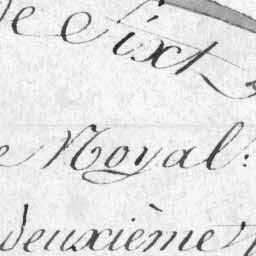 de Sixt
Noyal:
deuxième